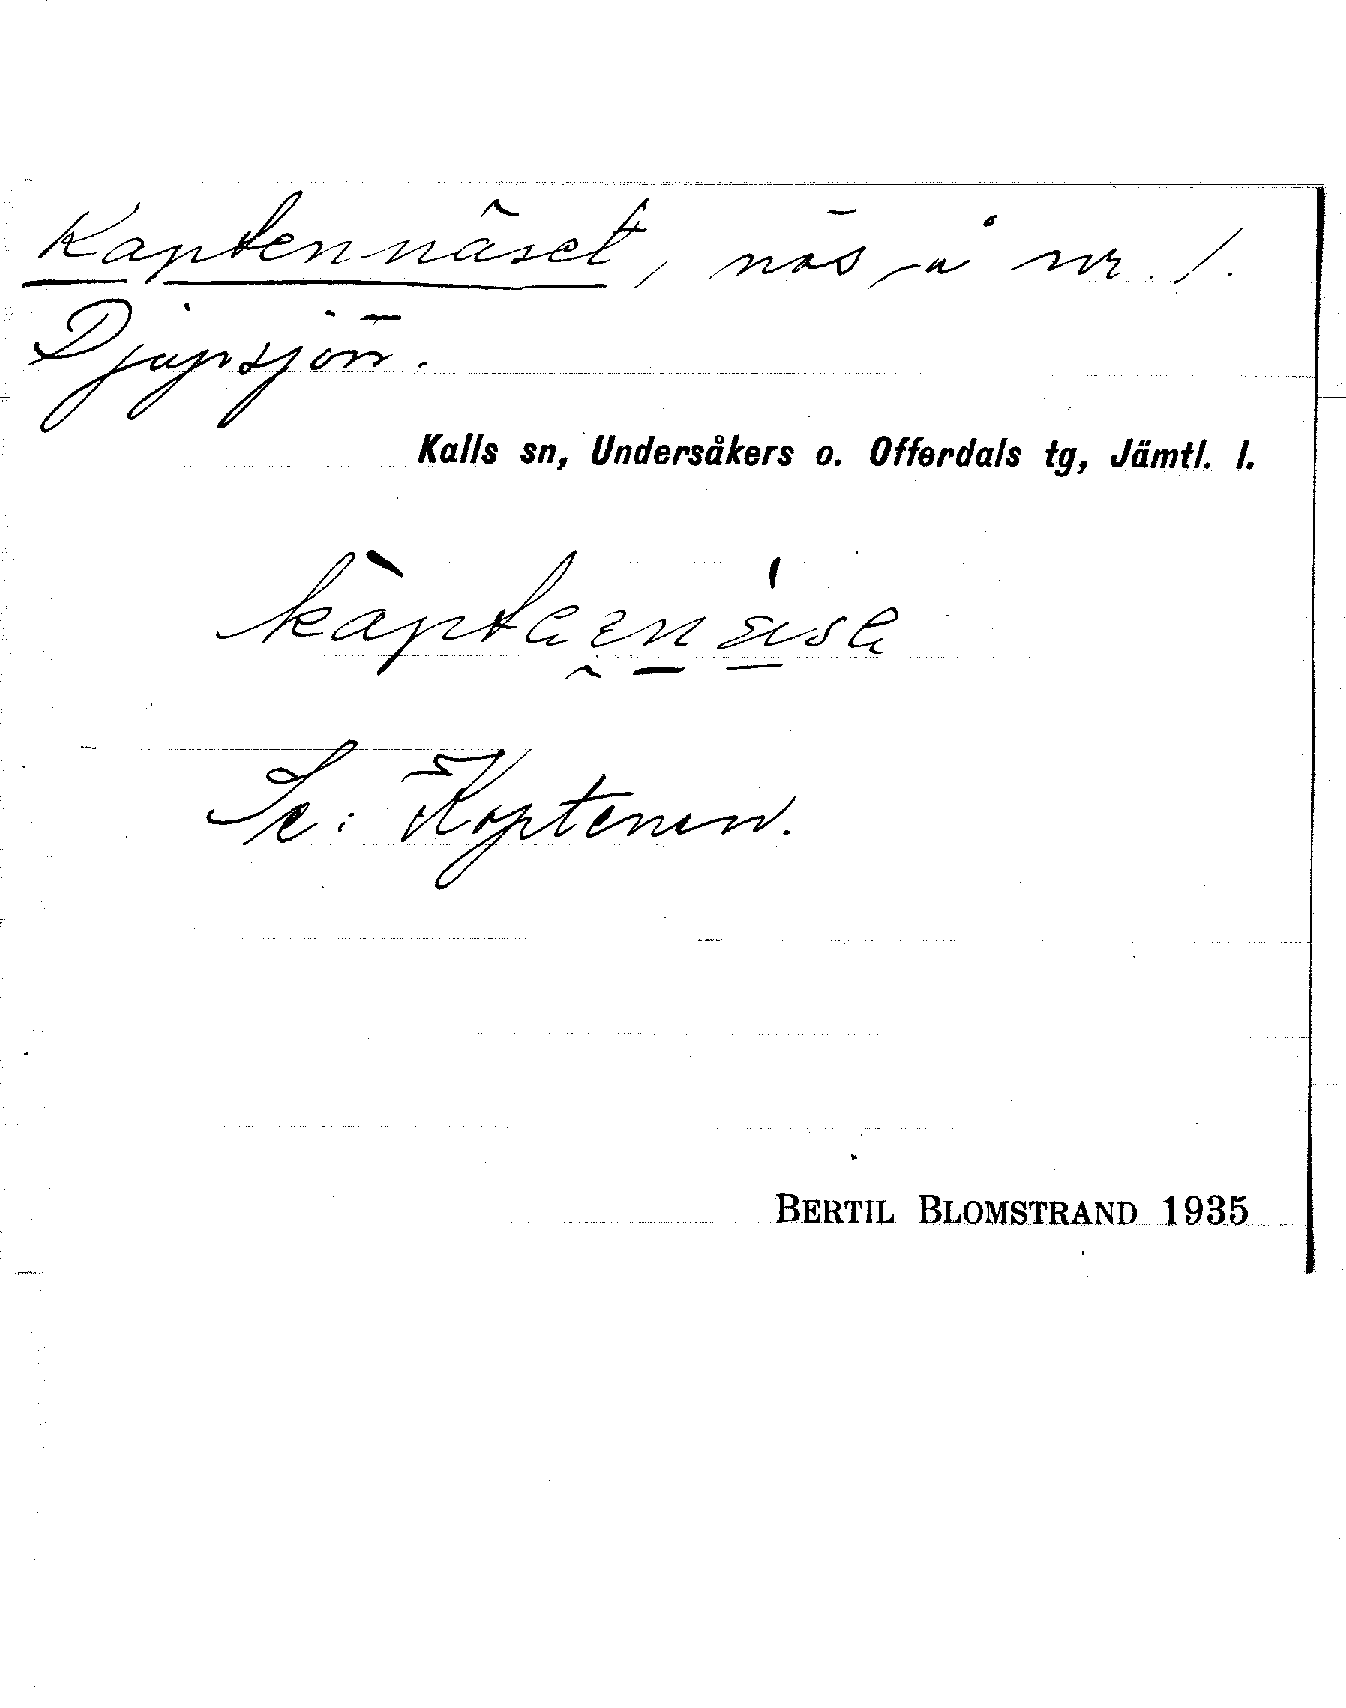 Kaptennäset, näs å nr. 1.
Djupsjön.
Kalls sn, Undersåkers o. Offerdals tg, Jämtl. l.
Se: Kaptenen.
BERTIL BLOMSTRAND 1935